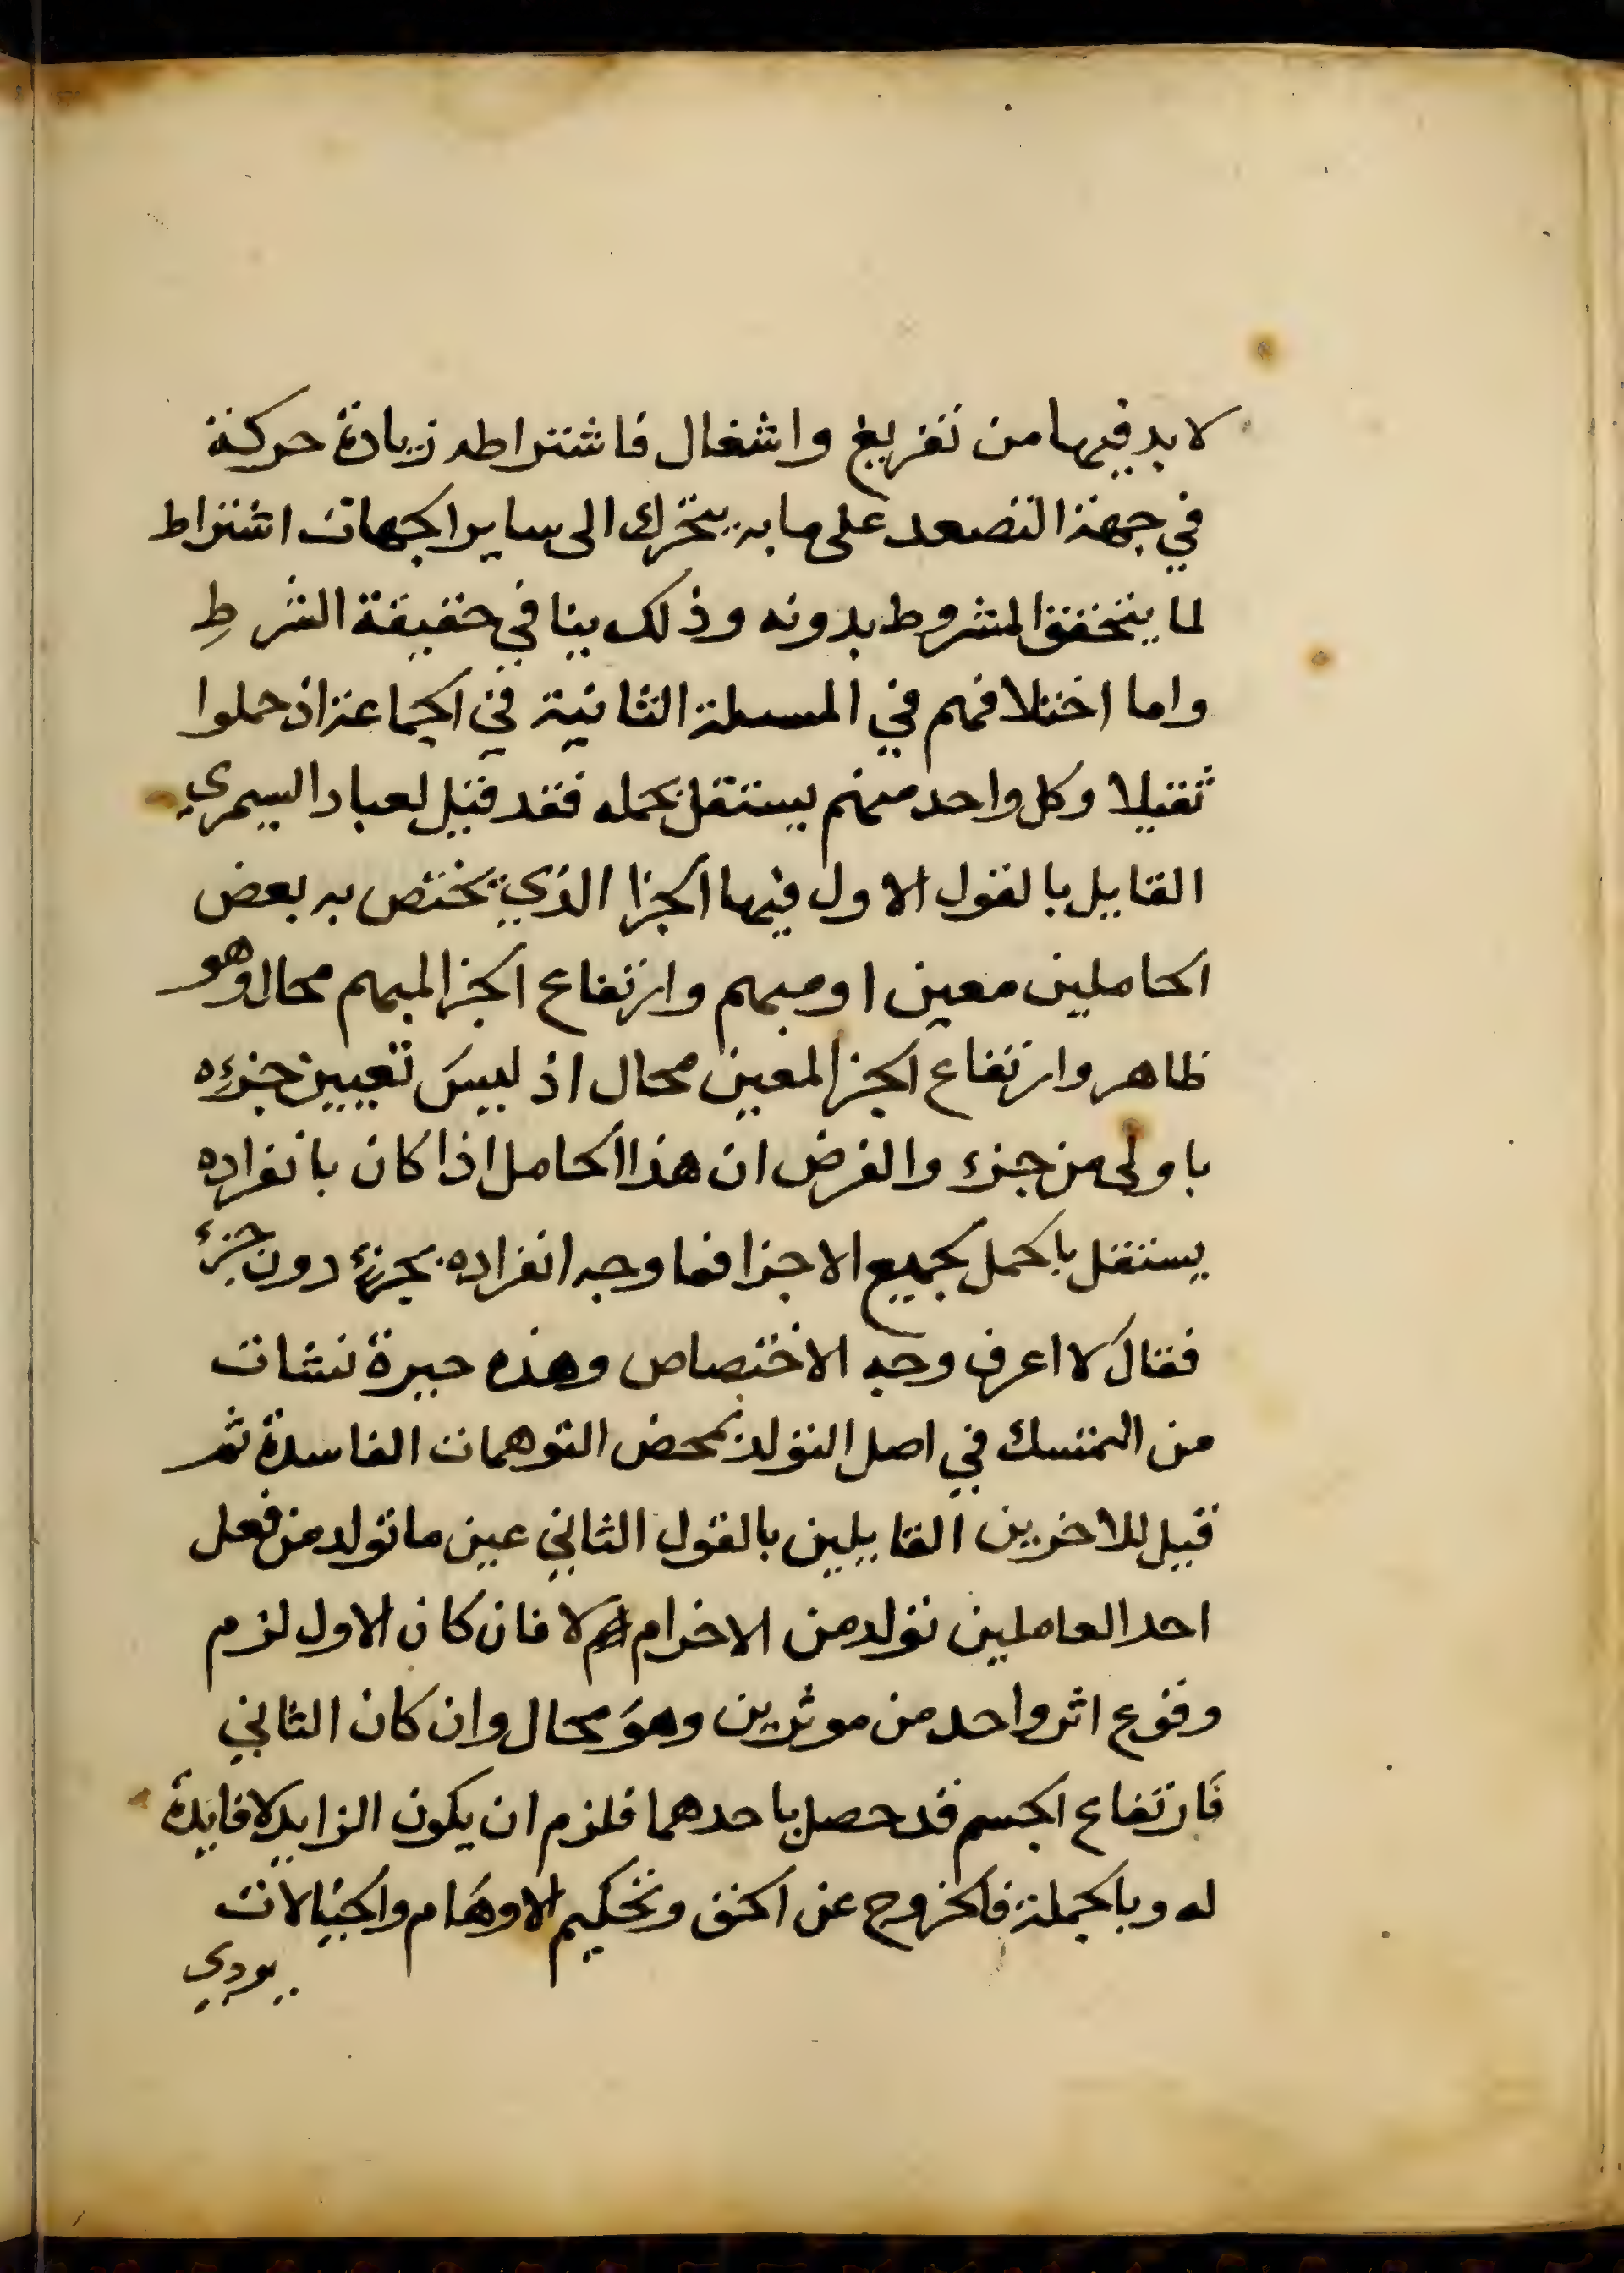 لا بد فيها من تفريغ واشغال فاشتراطه زيادة حركة
في جهة التصعد على ما به يتحرك الى ساير الجهات اشتراط
لما يتحقق المشروط بدونه وذلك ينافي حقيقة الشرطِ
واما اختلافهم في المسلة الثانية في الجماعة اذ حملوا
ثقيلا وكل واحد منهم يستقل بحمله فقد قيل لعباد السيمري
القايل بالقول الاول فيها الجزا الذي يختص به بعض
الحاملين معين او مبهم وارتفاع الجزا المبهم محال وهو
ظاهر وارتفاع الجزا المعين محال اذ ليس تعيين جزءه
باولى من جزء والفرض ان هذا الحامل اذا كان بانفراده
يستقل بالحمل بجميع الاجزا فما وجه انفراده بجزء دون جزء
فقال لا اعرف وجه الاختصاص وهذه حيرة نشات
من التمسك في اصل التولد بمحض التوهمات الفاسدة ثم
قيل للاخرين القايلين بالقول الثاني عين ما تولد من فعل
احد العاملين تولد من الاخر ام لا فان كان الاول لزم
وقوع اثر واحد من موثرين وهوَ محال وان كان الثاني
فارتفاع الجسم قد حصل باحدهما فلزم ان يكون الزايد لا فايدة
له وبالجملة فالخروج عن الحق وتحكيم الاوهَام والخيالات
يودي